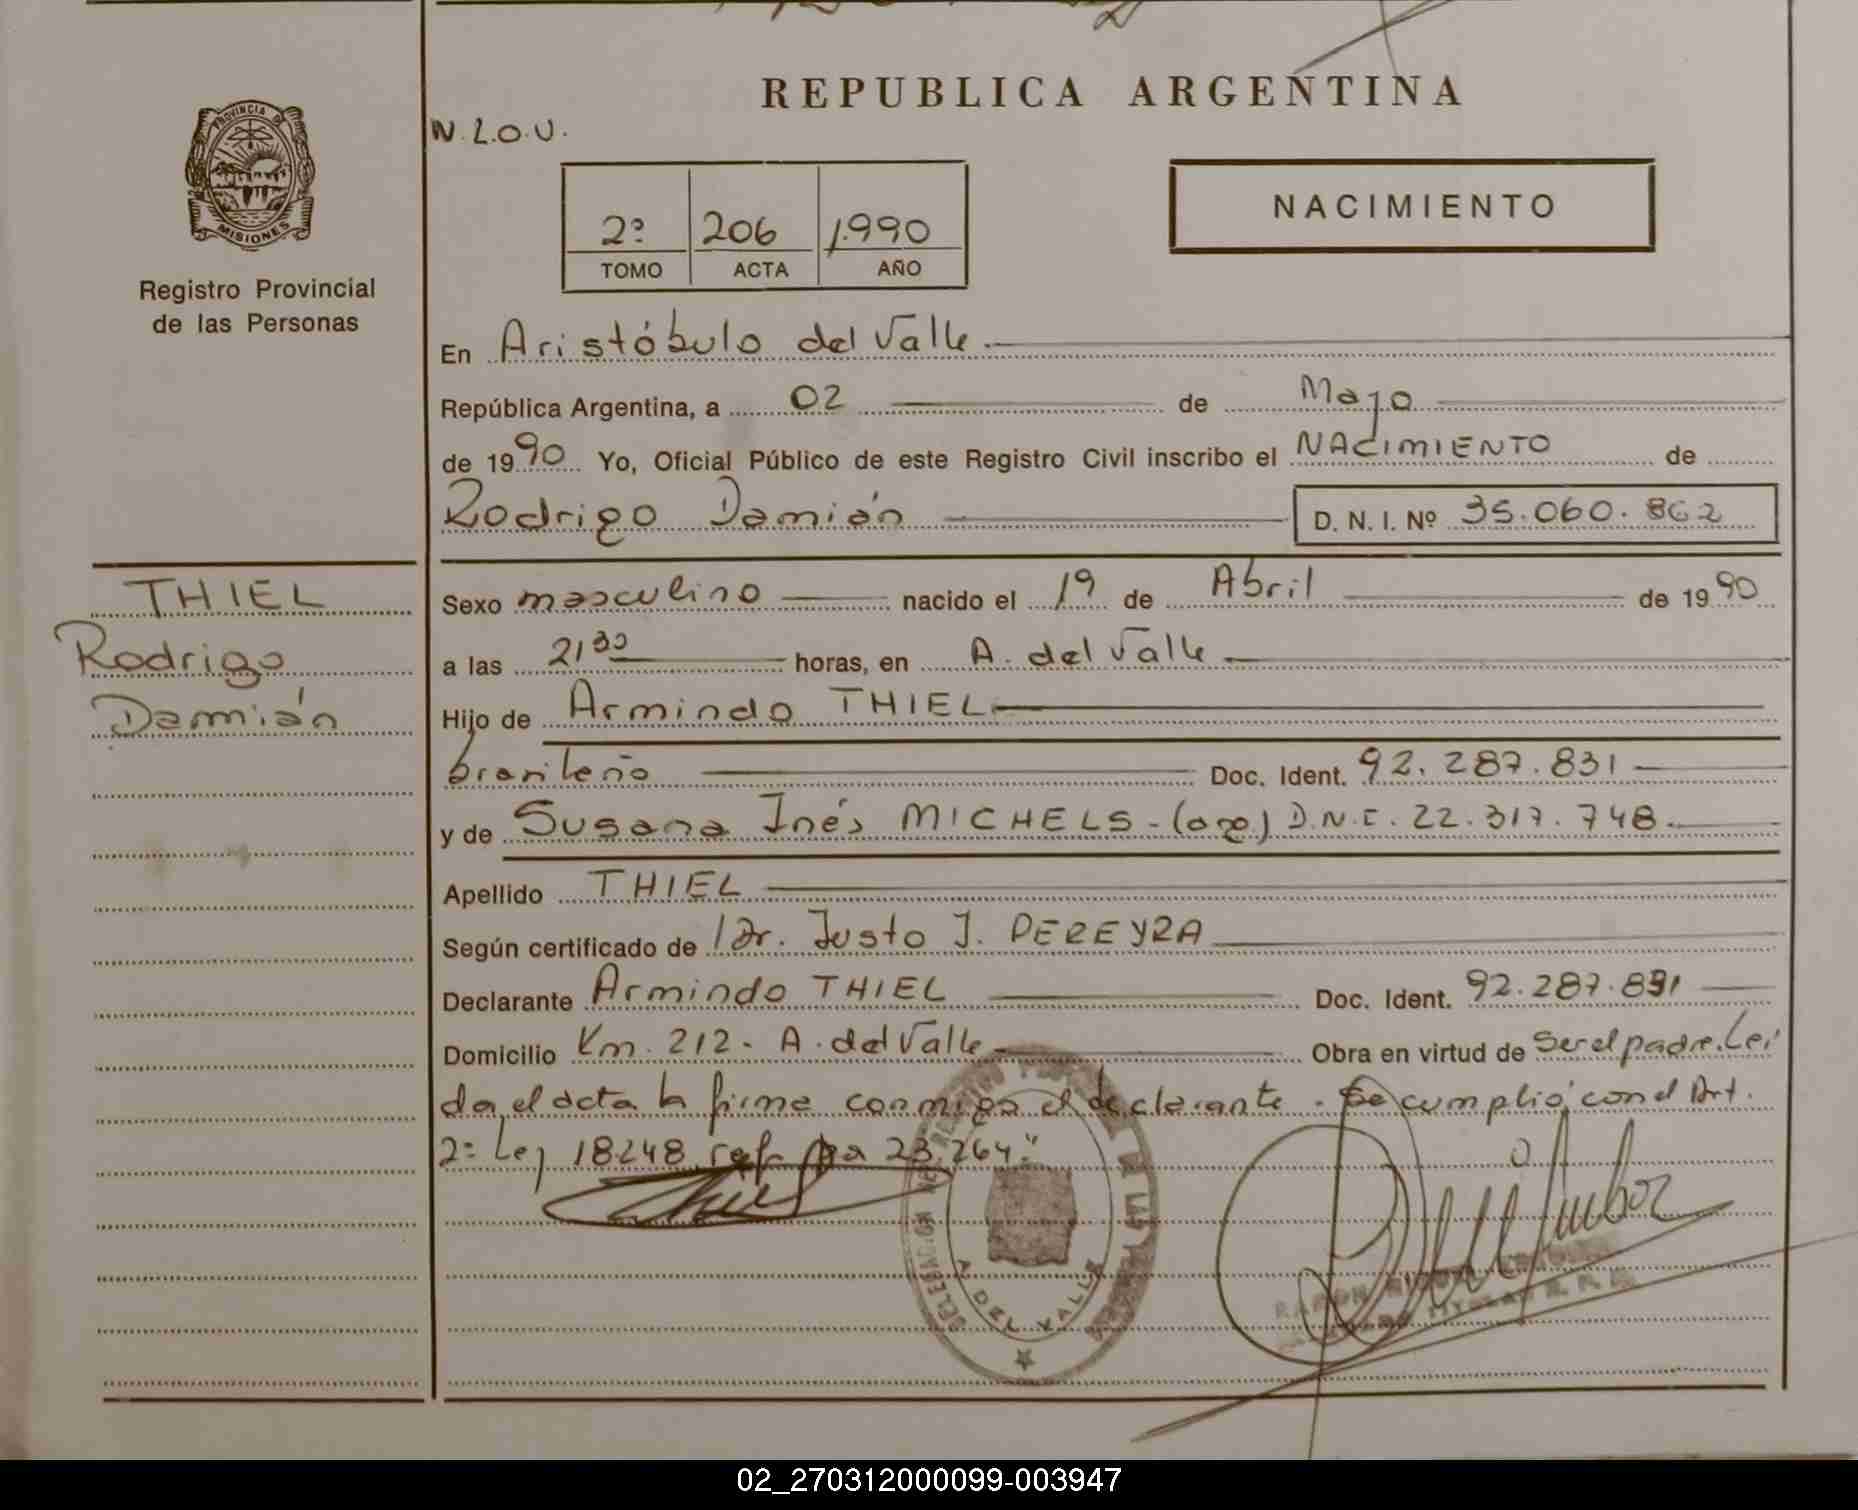 REPUBLICA ARGENTINA
PROVINCIA DE
MISIONES
Registro Provincial
de las Personas
N.L.O.U.
2º 206 1.990
TOMO ACTA AÑO
NACIMIENTO
En Aristóbulo del Valle
República Argentina, a 02 de Mayo
de 1990 Yo, Oficial Público de este Registro Civil inscribo el NACIMIENTO de
Rodrigo Damián D. N. I. Nº 35.060.862
THIEL
Rodrigo
Damián
Sexo masculino nacido el 19 de Abril de 1990
a las 21 30 horas, en A. del Valle
Hijo de Armindo THIEL
brasileño Doc. Ident. 92.287.831
y de Susana Inés MICHELS - (arg.) D.N.I. 22.317.748
Apellido THIEL
Según certificado de Dr. Justo J. PEREYRA
Declarante Armindo THIEL Doc. Ident. 92.287.831
Domicilio Km. 212 - A. del Valle Obra en virtud de Ser el padre. Leí
da el acta la firma conmigo el declarante. Se cumplió con el Art.
2º Ley 18.248 ref. por 23.264."
Thiel
DELEGACION DEL REGISTRO PROVINCIAL DE LAS PERSONAS
A. DEL VALLE
RAMON
02_270312000099-003947